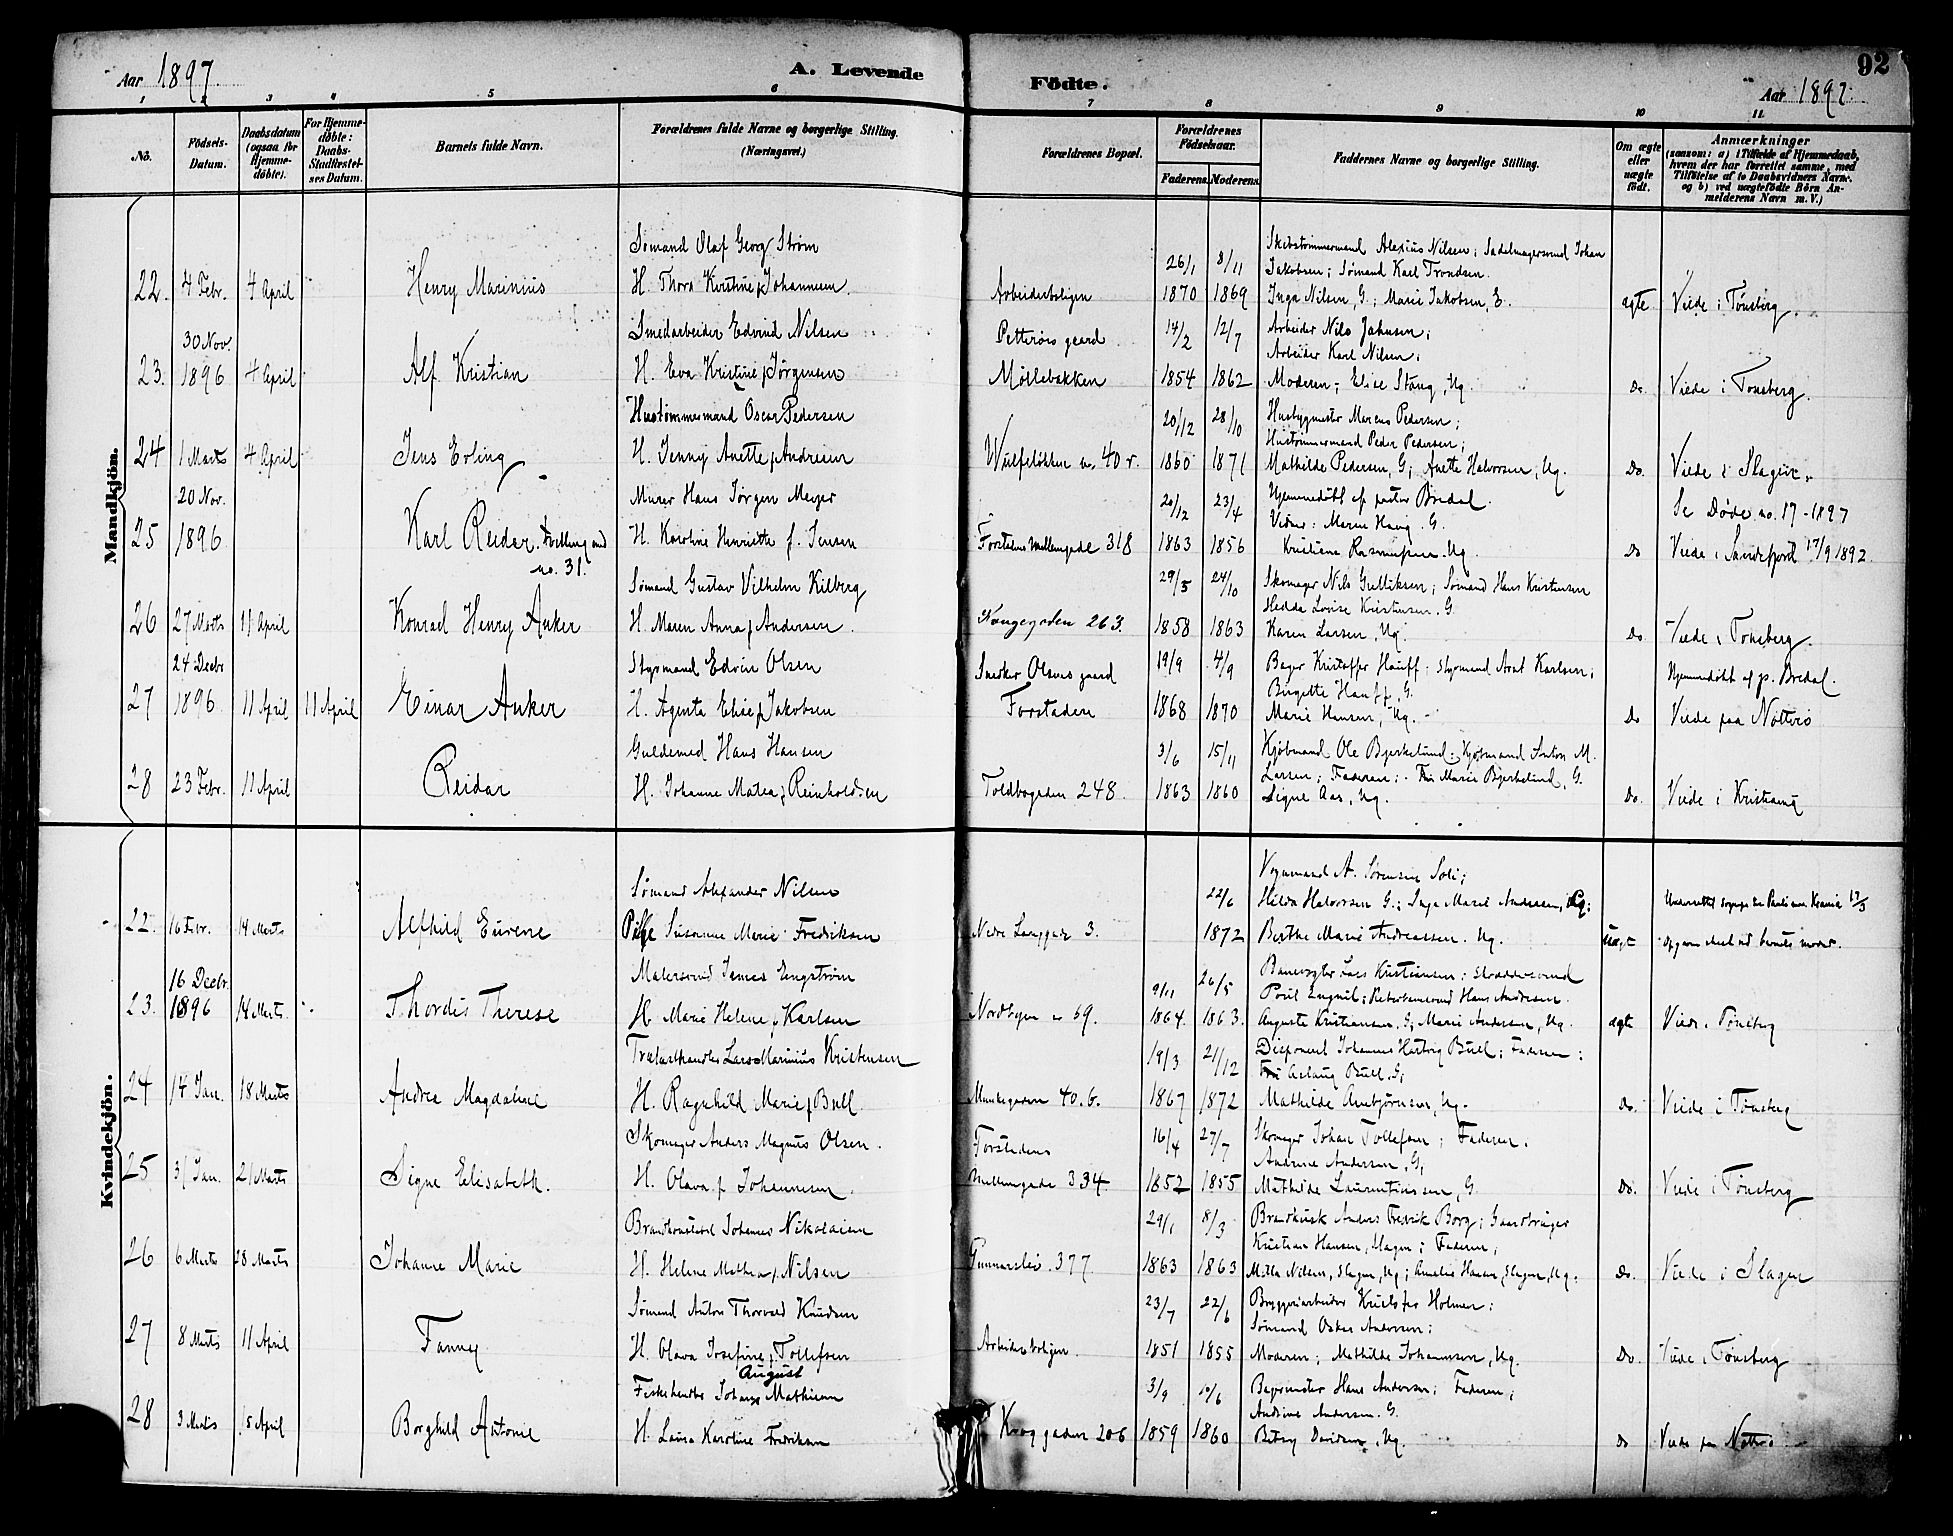 92
Aar 1897. A. Levende Födte. Aar 1897.
1 2 3 4 5 6 7 8 9 10 11
No. Födsels-Datum. Daabsdatum (ogsaa for Hjemme-döbte). For Hjemme-döbte: Daabs-Stadfæstel-ses Datum. Barnets fulde Navn. Forældrenes fulde Navne og borgerlige Stilling. (Næringsvei.) Forældrenes Bopæl. Forældrenes Födselsaar. Faderens. Moderens. Faddernes Navne og borgerlige Stilling. Om ægte eller uægte födt. Anmærkninger (saasom: a) i Tilfælde af Hjemmedaab, hvem der har forrettet samme, med Tilföielse af to Daabsvidners Navne. og b) ved uægtefödte Börn An-melderens Navn m. V.)
Mandkjön.
Sømand Olaf Georg Strøm 26/1 8/11 Skibstømmermand Alexius Nilsen; Sadelmagersvend Johan
Jakobsen; Sømand Karl Trondsen.
22. 4 Febr. 4 April Henry Marinius H. Thora Kirstine f. Johannesen. Arbeiderboligen 1870 1869 Inga Nilsen, G.; Marie Jakobsen, E. ægte Viede i Tönsberg.
30 Nov. Smedarbeider Edvind Nilsen Petterøes gaard 14/2 12/7 Arbeider Nils Jahnsen;
Arbeider Karl Nilsen;
23. 1896 4 April Alf Kristian H. Eva Kristine f. Jørgensen Møllebakken 1854 1862 Moderen; Elise Stang, Ug. Do. Viede i Tonsberg.
Hustømmermand Oscar Pedersen 20/12 28/10 Husbygmester Marcus Pedersen;
Hustømmermand Peder Pedersen;
24 1 Marts 4 April Jens Erling H. Jenny Anette f. Andresen Wulfeløkken n. 40 r. 1860 1871 Mathilde Pedersen, G; Anette Halvorsen, Ug. Do. Viede i Slagen.
20 Nov. Murer Hans Jørgen Meyer 20/12 23/4 Hjemmedöbt af pastor Bredal. Se Døde no. 17 - 1897
Vidner: Maren Haug. G.
25 1896 Karl Reidar. Tvilling med H. Karoline Henriette f. Jensen Forstadens Mellemgade 318 1863 1856 Kristiane Rasmussen. Ug. Do Viede i Sandefjord 17/9 1892.
no. 31.
Sømand Gustav Vilhelm Kilberg 29/5 24/10 Skomager Nils Gulliksen; Sømand Hans Kristensen
Hedda Lovise Kristensen. G.
26 27 Marts 11 April Konrad Henry Anker H. Maren Anna f. Andersen. Kongegaden 263. 1858 1863 Karen Larsen, Ug. Do Viede i Tonsberg.
24 Decbr Styrmand Edvin Olsen Snedker Olsens gaard 19/9 4/9 Bager Kristoffer Hauff; Styrmand Axel Karlsen; Hjemmedöbt af p. Bredal.
Birgette Hauff, G.
27 1896 11 April 11 April Einar Anker H. Agenta Elise f. Jakobsen Forstaden 1868 1870 Marie Hansen, Ug. Do Viede paa Nøtterø
Guldsmed Hans Hansen 3/6 15/11 Kjöbmand Ole Bjerkelund; Kjöbmand Anton M.
Larsen; Faderen; Fru Marie Bjerkelund, G.
28 23 Febr. 11 April Reidar H. Johanne Matea f. Reinholdsen Toldbogaden 248. 1863 1860 Signe Aas, Ug. Do. Viede i Kristiania
Kvindekjön.
Sømand Alexander Nilsen Vognmand A. Sørensen Soli;
22/6 Hilda Halvorsen G.; Inga Marie Andersen, Ug; 17/3
22. 16 Febr. 14 Marts Alfhild Eugenie Pige Susanne Marie Fredriksen Nedre Langgade 3. 1872 Berthe Marie Andreassen. Ug. Uægte
16 Decbr. Malersvend James Engstrøm 9/11 26/5 Kristiansen; Skræddersvend
Hans Andersen.
23. 1896 14 Marts Thordis Therese H. Marie Helene f. Karlsen Nordbyen n 69. 1864. 1863. Auguste Kristiansen. G; Marie Andersen, Ug. ægte Viede i Tönsberg
Trælasthandler Lars Marinius Kristensen 19/3 21/12 Disponent Johannes Hartvig Bull; Faderen;
Fru Aslaug Bull. G;
24 14 Jan. 18 Marts Andrea Magdalene H. Ragnhild Marie f. Bull. Munkegaden 40.b. 1867 1872 Mathilde Arnbjörnsen, Ug. Do. Viede i Tönsberg
Skomager Anders Magnus Olsen. Forstadens 16/4 27/7 Skomager Johan Tollefsen; Faderen.
Andrine Andersen, G;
25 31 Jan. 21 Marts Signe Elisabeth. H. Olava f. Johannesen. Mellemgade 334. 1852 1855 Mathilde Laurentiussen, G. Do. Viede i Tönsberg
Brandkonstabel Johannes Nikolaisen 29/1 8/3 Brandkusk Anders Fredrik Borg; Gaardbruger
Kristian Hansen, Slagen; Faderen;
26 6 Marts 28 Marts Johanne Marie H. Helene Mathea f. Nilsen Gunnarsbö. 377. 1863 1863 Milla Nilsen, Slagen, Ug; Amalie Hansen, Slagen, Ug. Do. Viede i Slagen
Sømand Anton Thorvald Knudsen 23/7 22/6 Bryggeriarbeider Kristofer Holmen;
Sømand Oskar Andersen;
27 8 Marts 11 April Fanny H. Olava Josefine f. Tollefsen Arbeiderboligen. 1851 1855 Moderen; Mathilde Johannesen, Ug. Do. Viede i Tönsberg
August
Fiskehandler Johan Mathisen 3/9 10/6 Bagermester Hans Andersen; Faderen;
Andrine Andersen. G.
28 3 Marts 15 April Borghild Antonie H. Laura Karoline Fredriksen Kroggaden 206 1859 1860 Betsy Davidsen, Ug. Do Viede paa Nøtterø